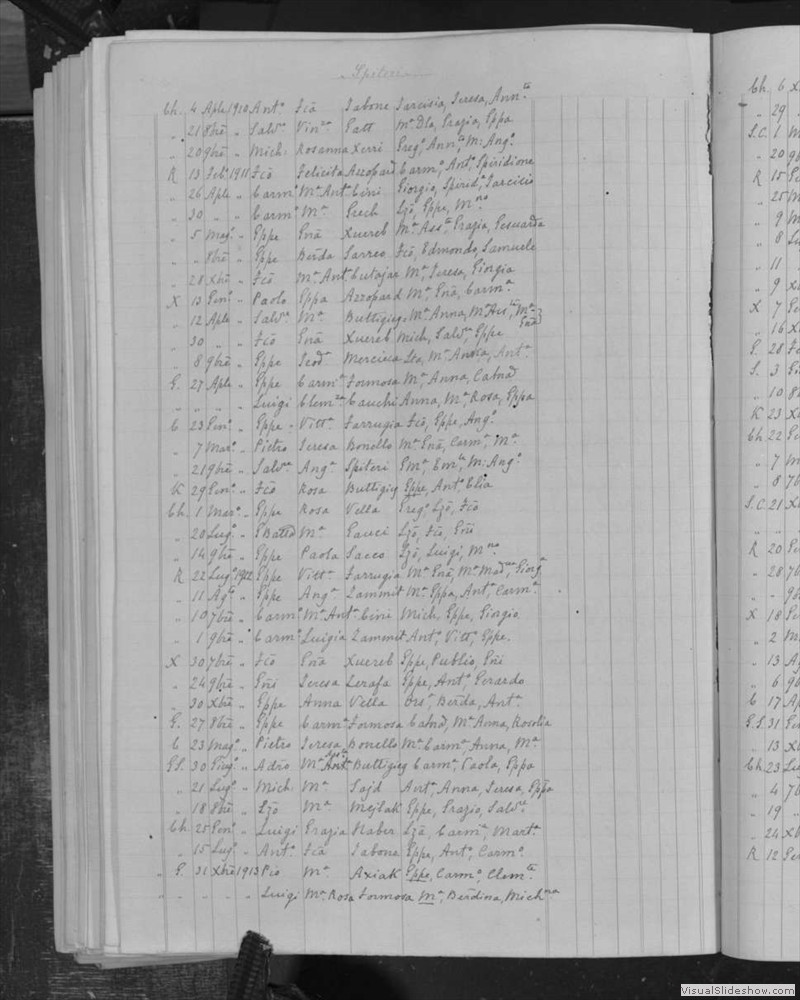 Spiteri
Ch. 4 Aple 1910 Ant.o Fcã Sabone Tarcisia, Teresa, Ann.ta
„ 21 8bre „ Salv.re Vin.za Gatt M.a Dla, Grazia, Eppa
„ 20 9bre „ Mich. Rosanna Xerri Greg.o, Ann.ta, M: Ang.a
R 13 Feb.o 1911 Fcõ Felicita Azzopard Carm.o, Ant.o, Spiridione
„ 26 Aple „ Carm.o M.a Ant.a Cini Giorgio, Spirid.e, Tarcisio
„ 30 „ „ Carm.o M.a Grech Ljõ, Eppe, M.no
„ 5 Mag.o „ Eppe Gnã Xuereb M.a Ass.ta, Grazia,
„ 8bre „ Eppe Berda Sarreo Fcõ, Edmondo, Samuele
„ 28 Xbre „ Fcõ M.a Ant.a Cutajar M.a, Teresa, Giorgia
X 13 Gen.o „ Paolo Eppa Azzopard M.a, Gnã, Carm.a
„ 12 Aple „ Salv.re M.a Buttigieg M.a Anna, M.a Ass.ta, M.a Gnã
„ 30 „ „ Fcõ Gnã Xuereb Mich, Salv.re, Eppe
„ 8 9bre „ Eppe Teod.a Mercieca M.a Ant.a
G. 27 Aple „ Eppe Carm.a Formosa M.a, Anna, Catnã
„ „ „ „ Luigi Clem.za Cauchi Anna, M.a Rosa, Eppa
C 23 Gen.o „ Eppe „ Vitt.a Farrugia Fcõ, Eppe, Ang.o
„ 7 Mar.o „ Pietro Teresa Bonello M.a Gnã, Carm.a, M.a
„ 21 9bre „ Salv.re Ang.a Spiteri Gm.a, Em.la, M: Ang.a
K 29 Gen.o „ Fcõ Rosa Buttigieg Eppe, Ant.o, Elia
Ch. 1 Mar.o „ Eppe Rosa Vella Greg.o, Ljõ, Fcõ
„ 20 Lug.o „ GBatta M.a Gauci Ljõ, Fcõ, Gñi
„ 14 9bre „ Eppe Paola Sacco Ljõ, Luigi, M.no
R 22 Lug.o 1912 Eppe Vitt.a Farrugia M.a Gnã, M.a Mad.na, Giorg.a
„ 11 Ag.o „ Eppe Ang.a Zammit M.a Eppa, Ant.a, Carm.a
„ 10 7bre „ Carm.o M.a Ant.a Cini Mich, Eppe, Giorgio
„ 1 9bre „ Carm.o Luigia Zammit Ant.o, Vitt.o, Eppe
X 30 7bre „ Fcõ Gnã Xuereb Eppe, Publio, Gñi
„ 24 9bre „ Gñi Teresa Zerafa Eppe, Ant.o, Gerardo
„ 30 Xbre „ Eppe Anna Vella Ors.a, Berda, Ant.a
G. 27 8bre „ Eppe Carm.a Formosa Catnã, M.a Anna, Rosolia
C 23 Mag.o „ Pietro Teresa Bonello M.a Carm.a, Anna, M.a
G.S. 30 Giug.o „ Adeo M.a Ant.a Buttigieg Carm.a, Paola, Eppa
„ 21 Lug.o „ Mich. M.a Sajd Ant.a, Anna, Teresa, Eppa
„ 18 8bre „ Ljõ M.a Mejlak Eppe, Grazio, Salv.re
Ch. 25 Gen.o „ Luigi Grazia Naber Ljã, Carm.a, Mart.a
„ 15 Lug.o „ Ant.o Fcã Sabone Eppe, Ant.o, Carm.o
„ G. 31 Xbre 1913 Pio M.a Axiak Eppe, Carm.o, Clem.te
„ „ „ „ Luigi M.a Rosa Formosa M.a, Berdina, Mich.na
Ch. 6
„ 29
S.C. 1
„ 20
R 15
„ 25
„ 9
„ 8
„ 11
„ 9
X 7
„ 16
G. 28
S. 3
„ 10
K 23
Ch 22
„ 7
„ 8
S.C. 21
R 20
„ 28
X 18
„ 2
„ 13
„ 6
C 17
G.S. 31
„ 13
Ch. 23
„ 4
„ 19
„ 24
R 12
VisualSlideshow.com